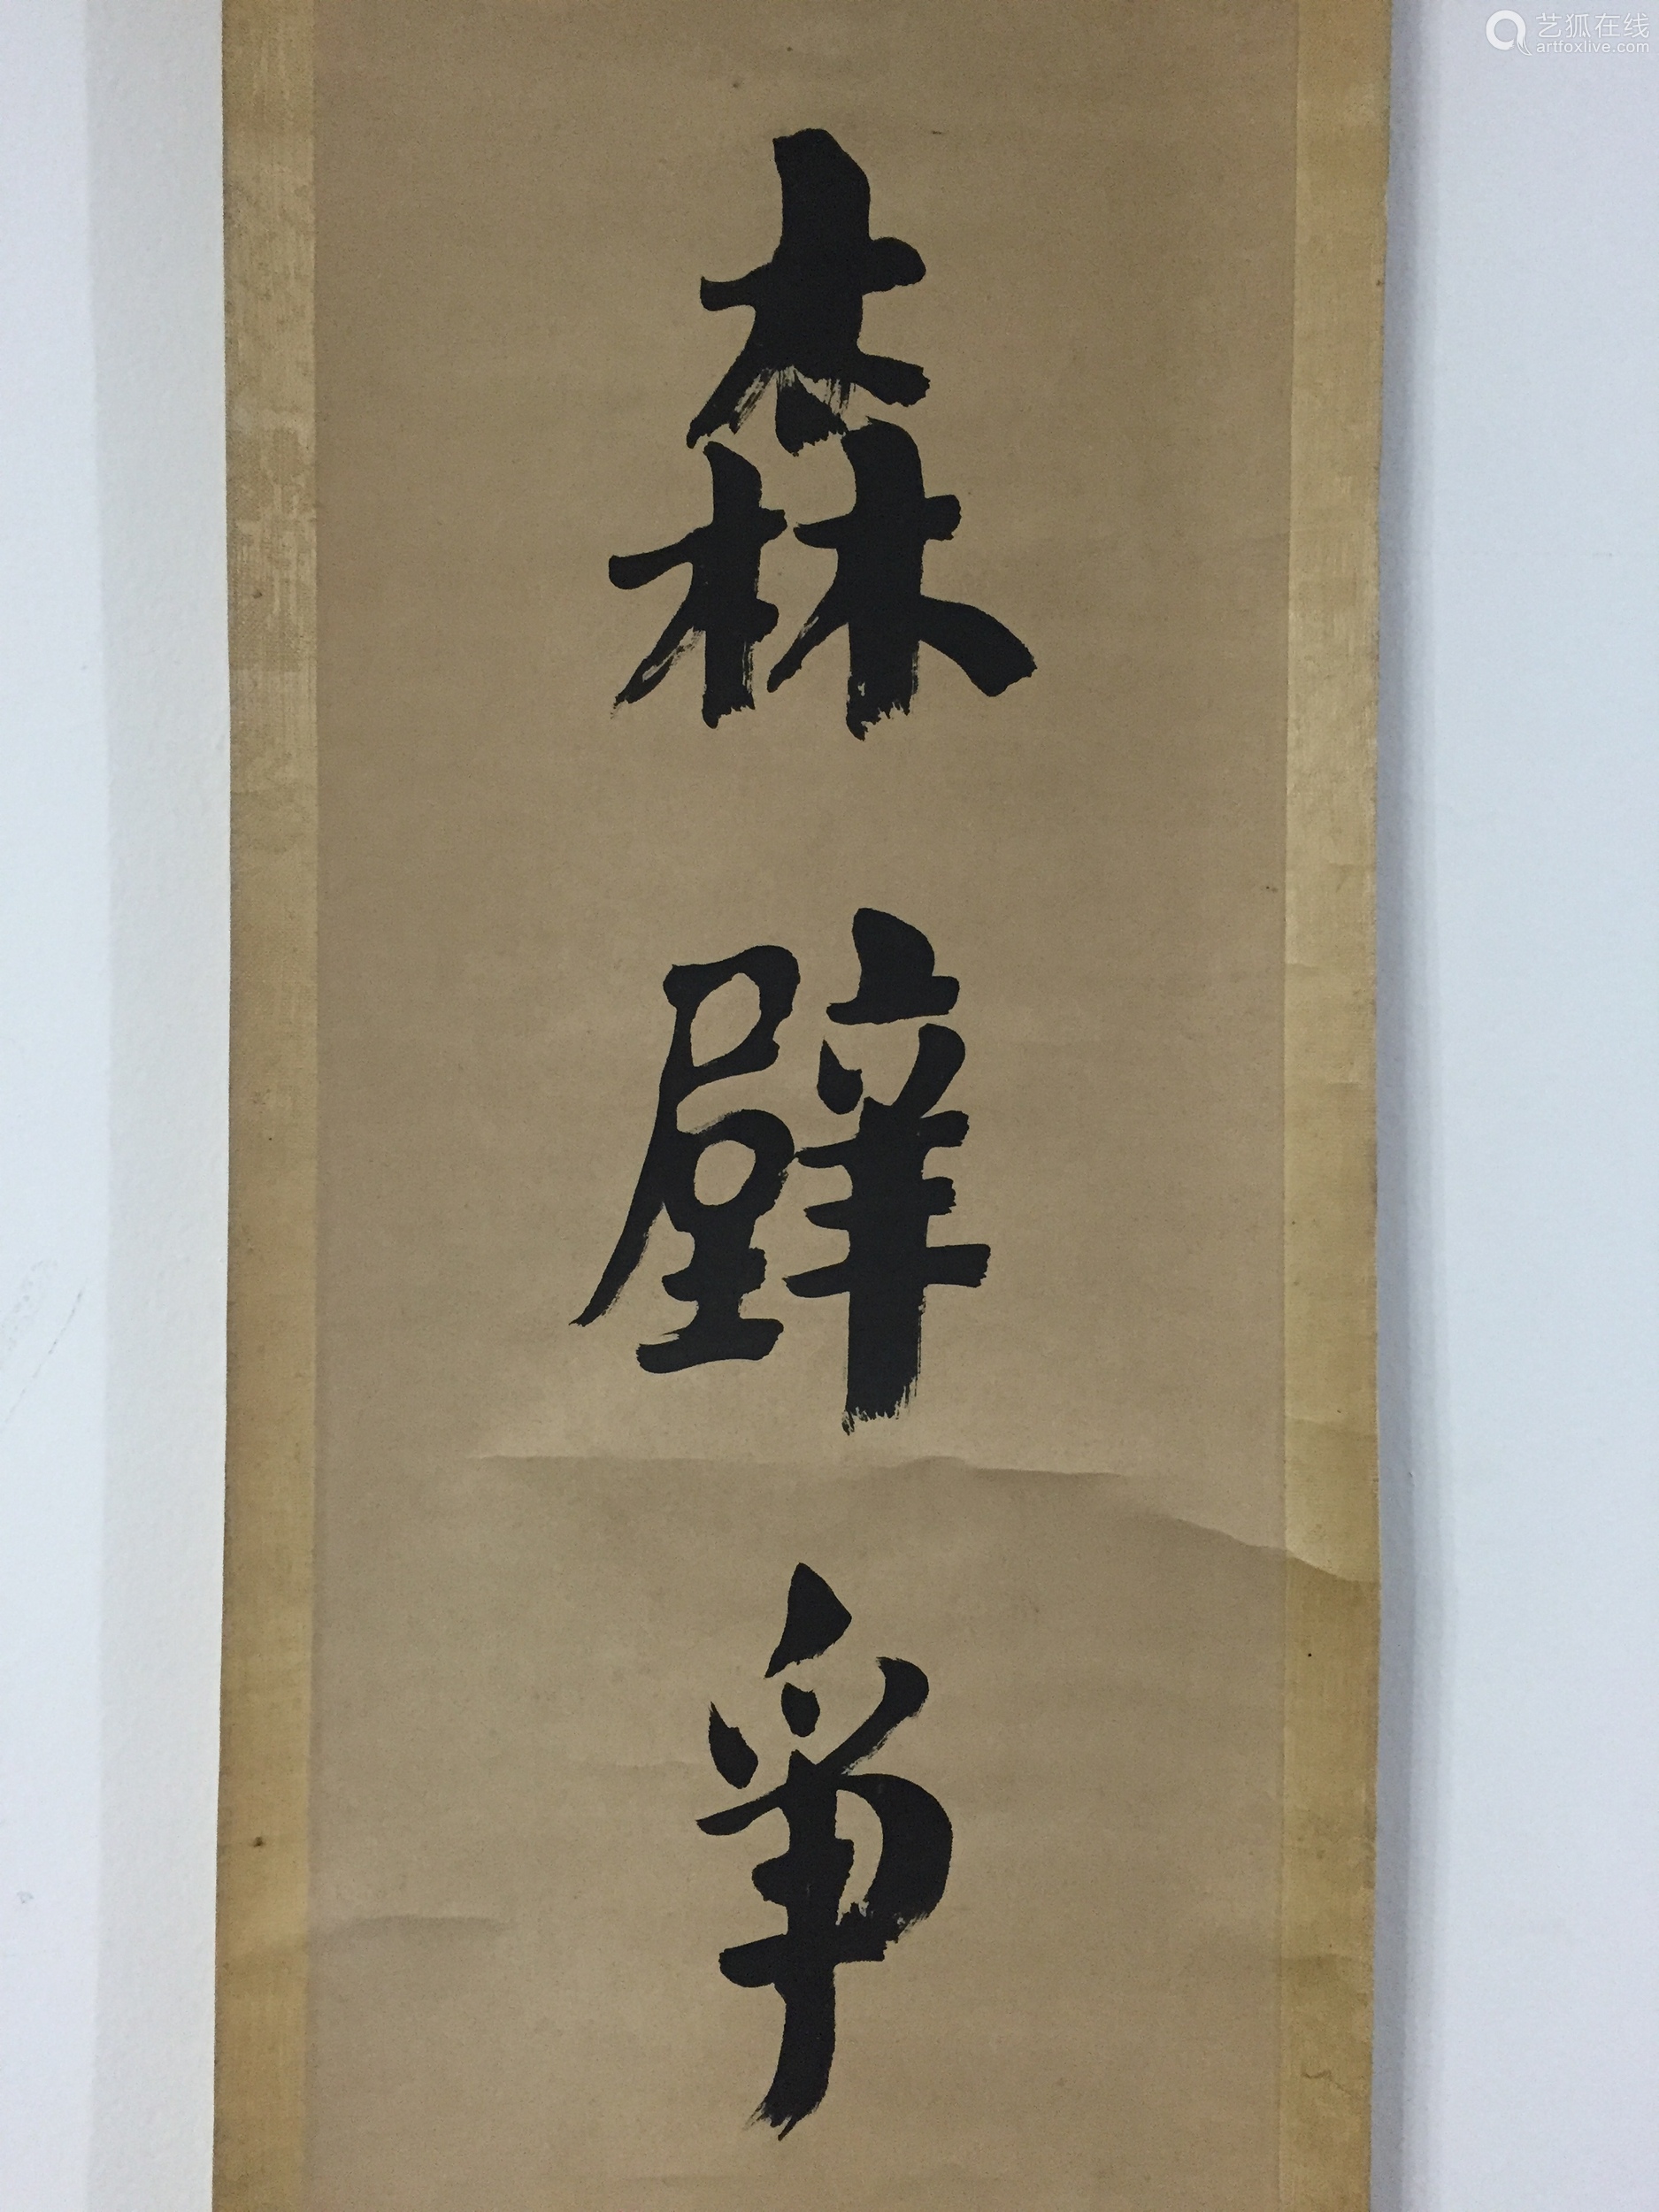 艺狐在线
artfoxlive.com
森
壁
爭